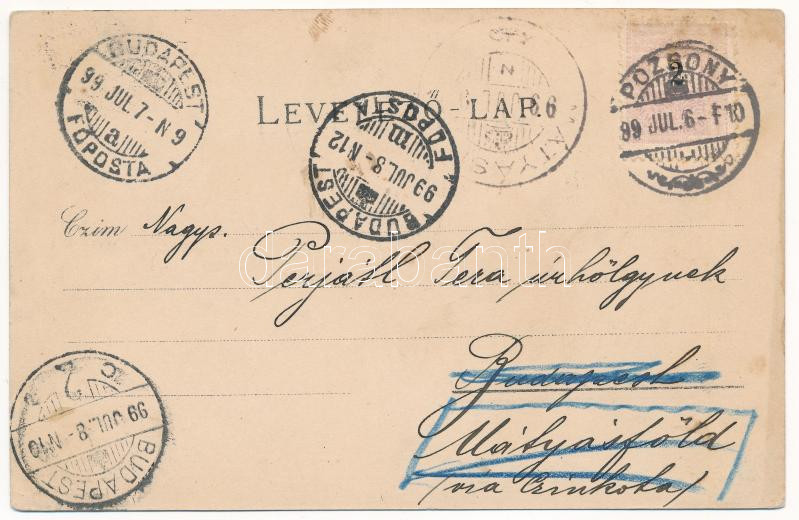 BUDAPEST
99 JUL. 7-N 9
a
FŐPOSTA
BUDAPEST
99 JUL. 8-N12
m
FŐPOSTA
MÁTYÁS
N
99
2
POZSONY
99 JUL. 6-F10
LEVELEZŐ-LAP.
Czim Nagys.
Perjátl Tera úrhölgynek
darabanth
Budapest
Mátyásföld
(via Czinkota)
BUDAPEST
99 JUL. 8-N10
2